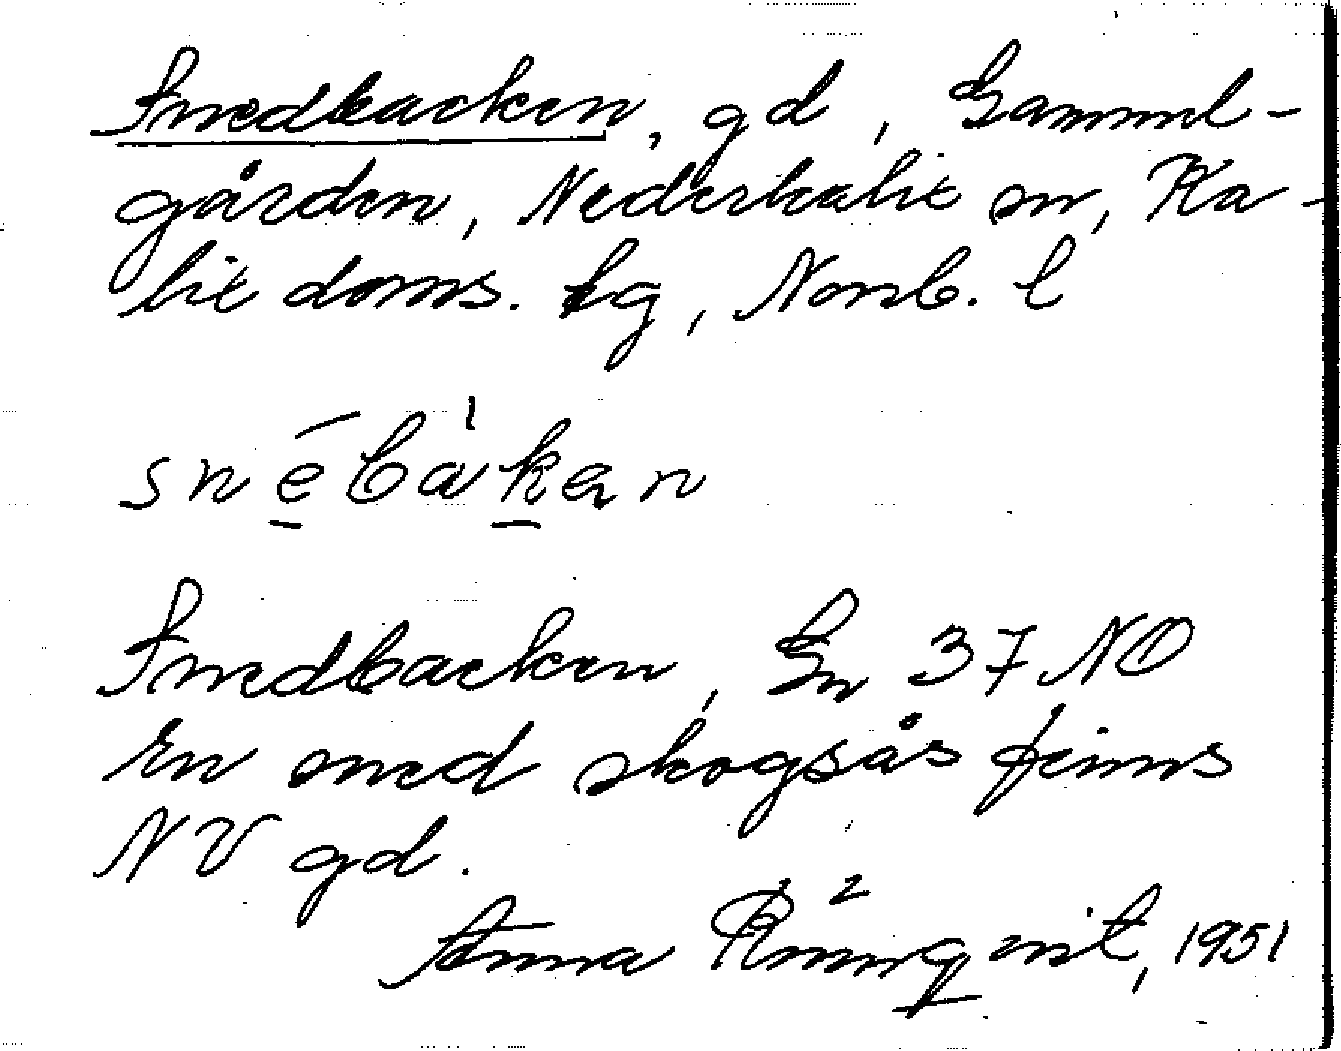 Snedbacken, gd, Gammel-
gården, Nederkalix sn, Ka-
lix doms. lg, Norrb. l
snébàkan
Snedbacken, En 37 NO
En med skogsås finns
NV gd.
Anna Rönnqvist, 1951